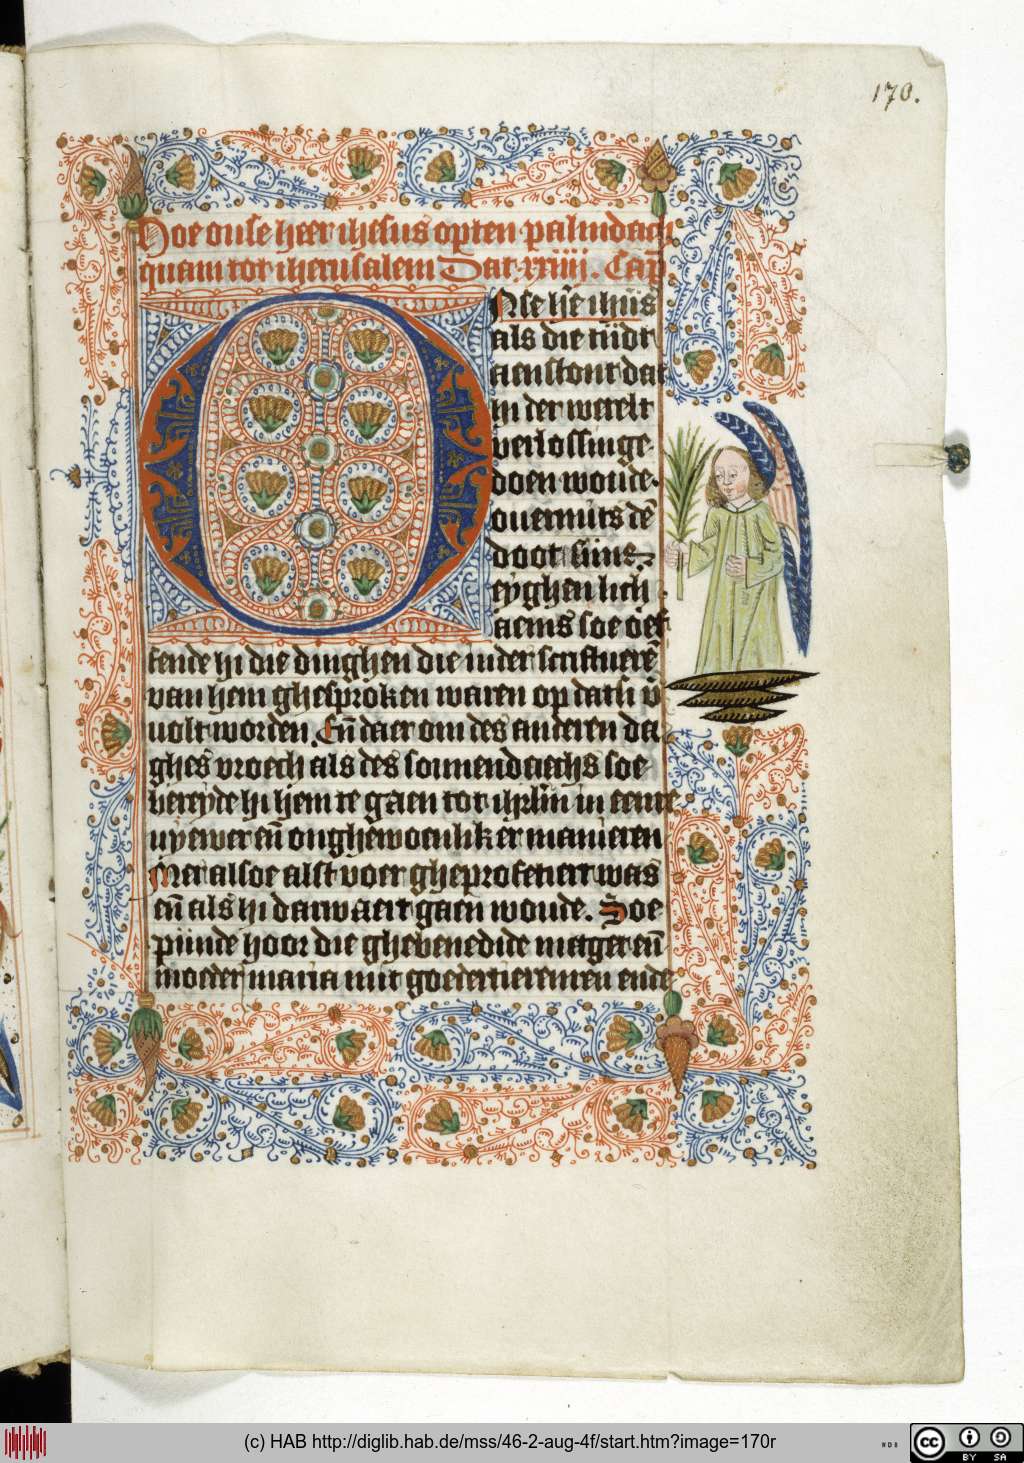 170.
Hoe onse heer ihesus opten palmdach
quam tot iherusalem Dat xxiiij. Cap
ONse he᷑ ihūs
als die tijdt
aenstont dat
hi der werelt
verlossinge
doen woude
ouermits dē
doot sijns
eyghen lich
aems soe oef
fende hi die dinghen die in der scriftuerē
van hem ghesproken waren op dat si v
uolt worden. Eñ daer om des anderen da
ghes vroech als des sonnendaechs soe
bereyde hi hem te gaen tot ihrlm in eenre
nyewer eñ onghewoenliker manieren
Mer alsoe alst voer gheprofeteert was
eñ als hi darwaert gaen woude. Soe
pijnde hoor die ghebenedide maget eñ
moeder maria mit goedertierenren ende
(c) HAB http://diglib.hab.de/mss/46-2-aug-4f/start.htm?image=170r
cc BY SA